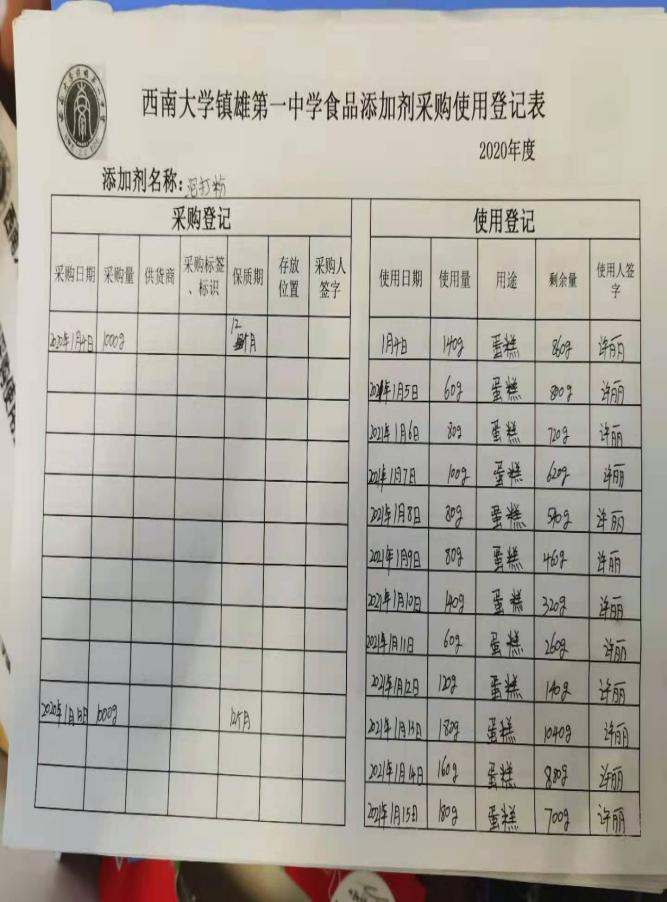 西南大学镇雄第一中学食品添加剂采购使用登记表
2020年度
添加剂名称：泡打粉
采购登记 使用登记
采购日期 采购量 供货商 采购标签、标识 保质期 存放位置 采购人签字 使用日期 使用量 用途 剩余量 使用人签字
2020年1月4日 1000g 12个月 1月4日 140g 蛋糕 860g 许丽
2021年1月5日 60g 蛋糕 800g 许丽
2021年1月6日 80g 蛋糕 720g 许丽
2021年1月7日 100g 蛋糕 620g 许丽
2021年1月8日 80g 蛋糕 540g 许丽
2021年1月9日 80g 蛋糕 460g 许丽
2021年1月10日 140g 蛋糕 320g 许丽
2021年1月11日 60g 蛋糕 260g 许丽
2021年1月12日 120g 蛋糕 140g 许丽
2020年1月 1000g 12个月 2021年1月13日 180g 蛋糕 1040g 许丽
2021年1月14日 160g 蛋糕 880g 许丽
2021年1月15日 180g 蛋糕 700g 许丽